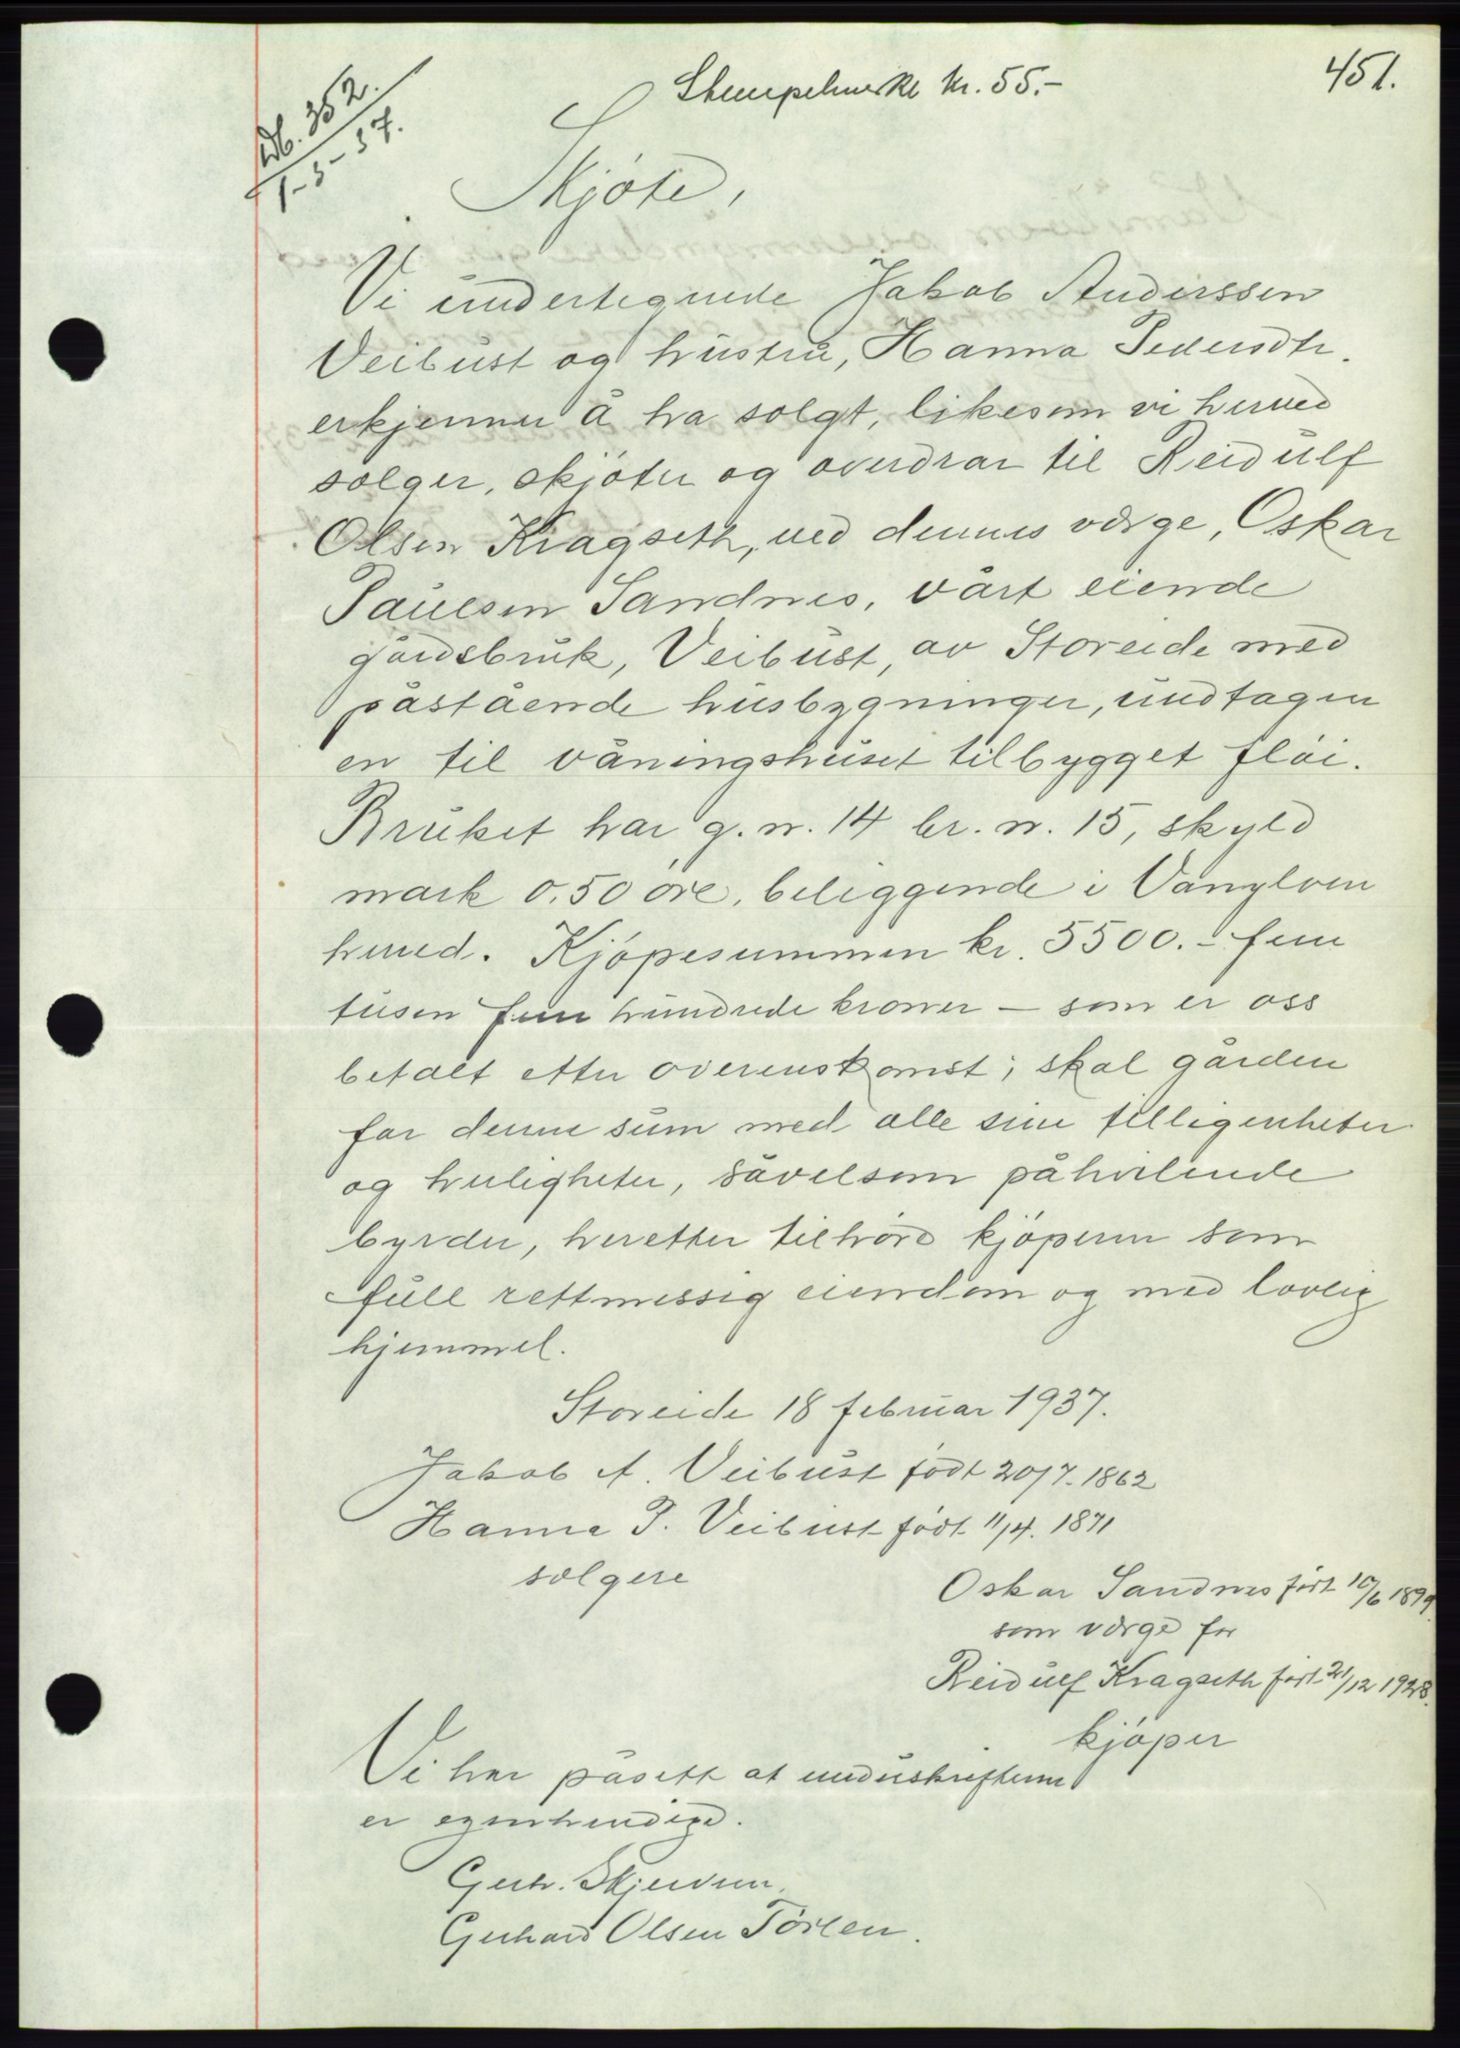 451.
Stempelmerke kr. 55.-
Db. 352.
1-3-37.
Skjöte,
Vi undertegnede Jakob Anderssen
Veibust og hustru, Hanna Pedersdtr.
erkjenner å ha solgt, likesom vi herved
selger, skjöter og overdrar til Reidulf
Olsen Kragseth, ved dennes verge, Oskar
Paulsen Sandnes, vårt eiende
gårdsbruk, Veibust, av Storeide med
påstående husbygninger, undtagen
en til våningshuset tilbygget flöi.
Bruket har g. n. 14 br. n. 15, skyld
mark 0.50 öre, beliggende i Vanylven
herred. Kjöpesummen kr. 5500.- fem
tusen fem hundrede kroner - som er oss
betalt efter overenskomst; skal gården
for denne sum med alle sine tilligenheter
og herligheter, såvelsom påhvilende
byrder, herefter tilhöre kjöperen som
full rettmessig eiendom og med lovlig
hjemmel.
Storeide 18 februar 1937.
Jakob A. Veibust födt 20/7-1862
Hanna P. Veibust födt 11/4. 1871
selgere
Oskar Sandnes födt 10/6 1899.
som verge for
Reidulf Kragseth födt 21/12 1928.
kjöper
Vi har påsett at underskriftene
er egenhendige.
Gerh. Skjervem.
Gerhard Olsen Törlen.